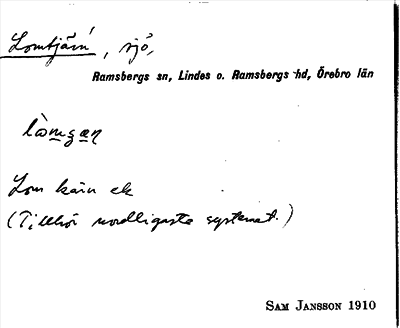 Lomtjärn, sjö,
Ramsbergs sn, Lindes o. Ramsbergs hd, Örebro län
Lom kärn ek
(Tillhör nordligaste systemat.)
SAM JANSSON 1910